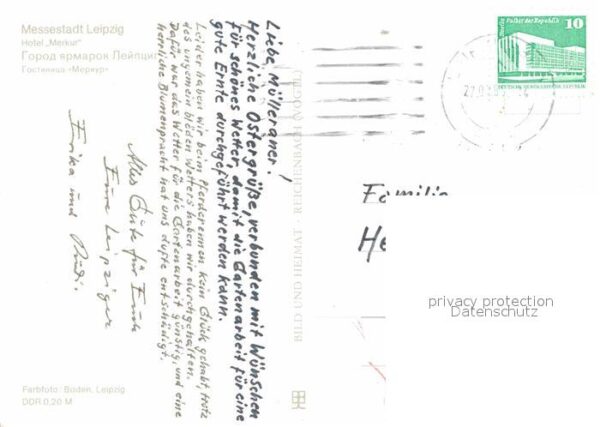 Messestadt Leipzig
Hotel „Merkur"
Город ярмарок Лейпциг
Гостиница «Меркур»
Liebe Mülleraner!
Herzliche Ostergrüße, verbunden mit Wünschen
für schönes Wetter, damit die Gartenarbeit für eine
gute Ernte durchgeführt werden kann.
Leider haben wir beim Pferderennen kein Glück gehabt, trotz
des ungemein blöden Wetters haben wir durchgehalten.
Dafür war das Wetter für die Gartenarbeit günstig, und eine
herrliche Blumenpracht hat uns dufte entschädigt.
Alles Gute für Euch
Eure Leipziger
Erika und Rudi.
Farbfoto: Boden, Leipzig
DDR 0,20 M
BILD UND HEIMAT REICHENBACH
Berlin Palast der Republik
10
DEUTSCHE DEMOKRATISCHE REPUBLIK
Familie
He
privacy protection
Datenschutz